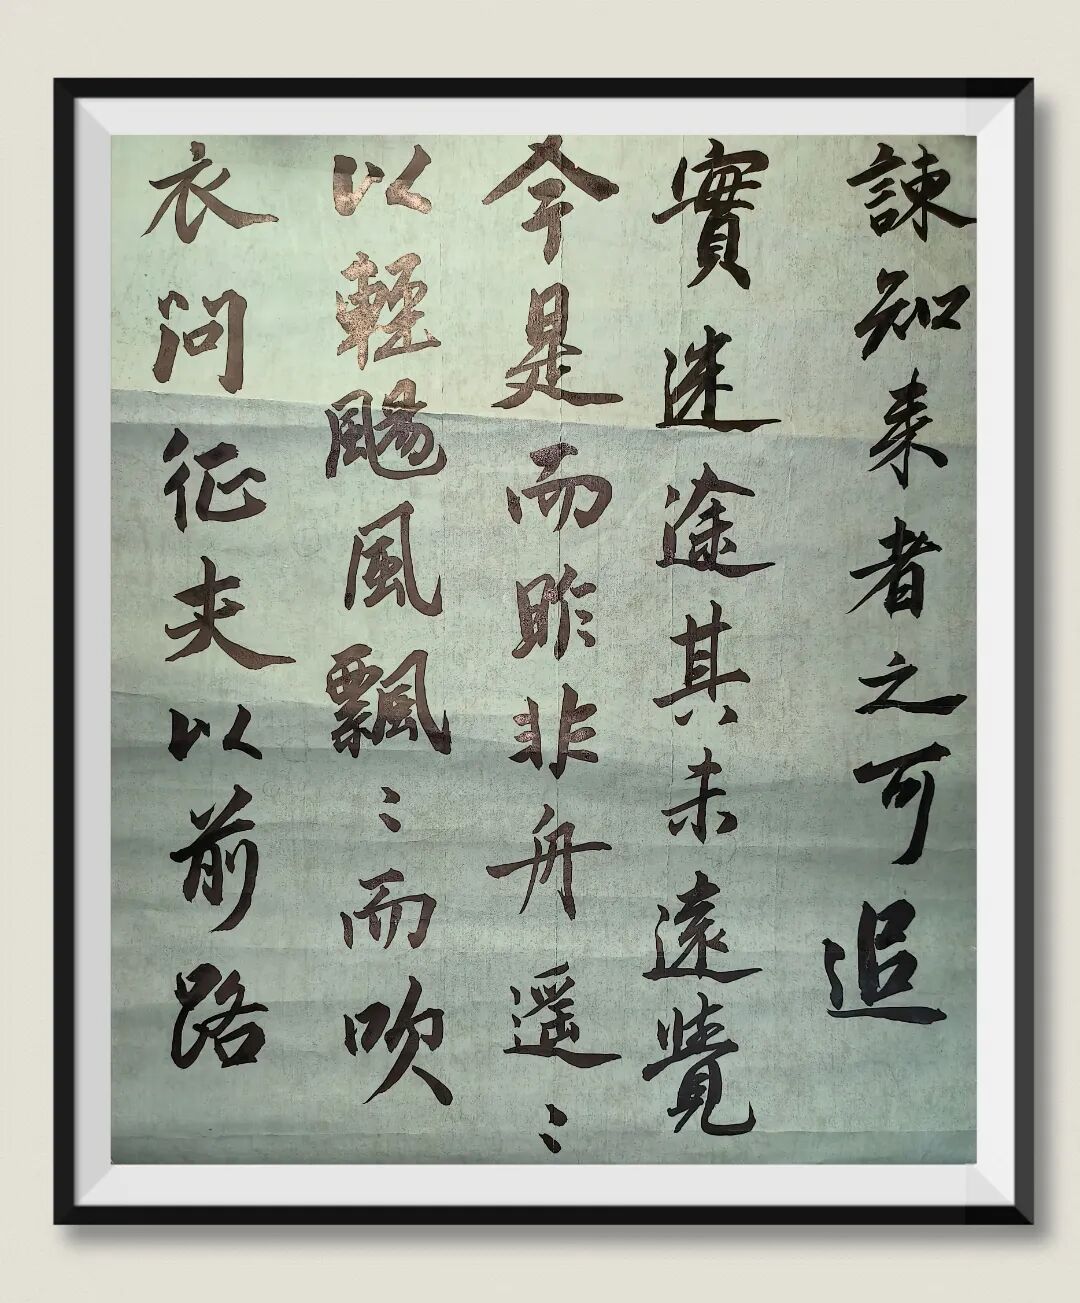 諫知来者之可追
實迷途其未遠覺
今是而昨非舟遥〻
以輕颺風飄〻而吹
衣问征夫以前路